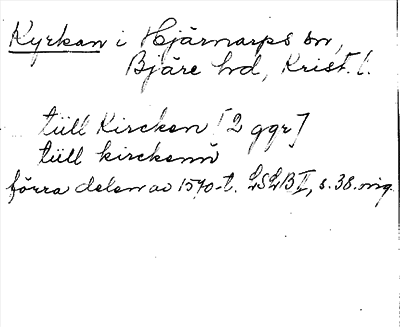 Kyrkan i Hjärnarps sn,
Bjäre hd, Krist. l.
tüll Kircken [2 ggr]
tüll kirckenn
förra delen av 1570-t. LSLB II, s. 38. mig.